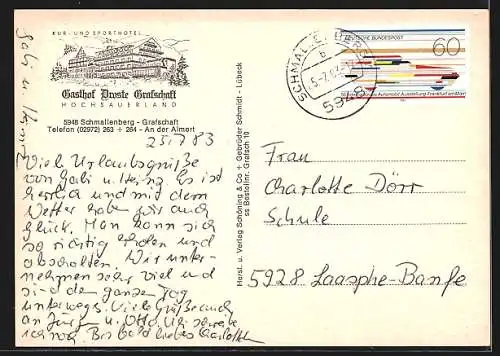 KUR- UND SPORTHOTEL
Gasthof Droste Grafschaft
HOCHSAUERLAND
5948 Schmallenberg - Grafschaft
Telefon (02972) 263 + 264 - An der Almert
25.7.83
Viel Urlaubsgrüße
von Gabi u. Heinz. Es ist
herrlich und mit dem
Wetter haben wir auch
Glück. Man kann sich
so richtig erholen und
abschalten. Wir unter-
nehmen sehr viel und
sind den ganzen Tag
unterwegs. Viele Grüße auch
an Jürg u. Otto.
Bis bald liebes Charlottchen
Gabi u. Heinz
Herst. u. Verlag Schöning & Co + Gebrüder Schmidt - Lübeck
ss Bestellnr. Grafsch 10
SCHMALLENBERG
5948
DEUTSCHE BUNDESPOST
60
Internationale Automobil-Ausstellung Frankfurt am Main
Frau
Charlotte Dörr
Schule
5928 Laasphe-Banfe